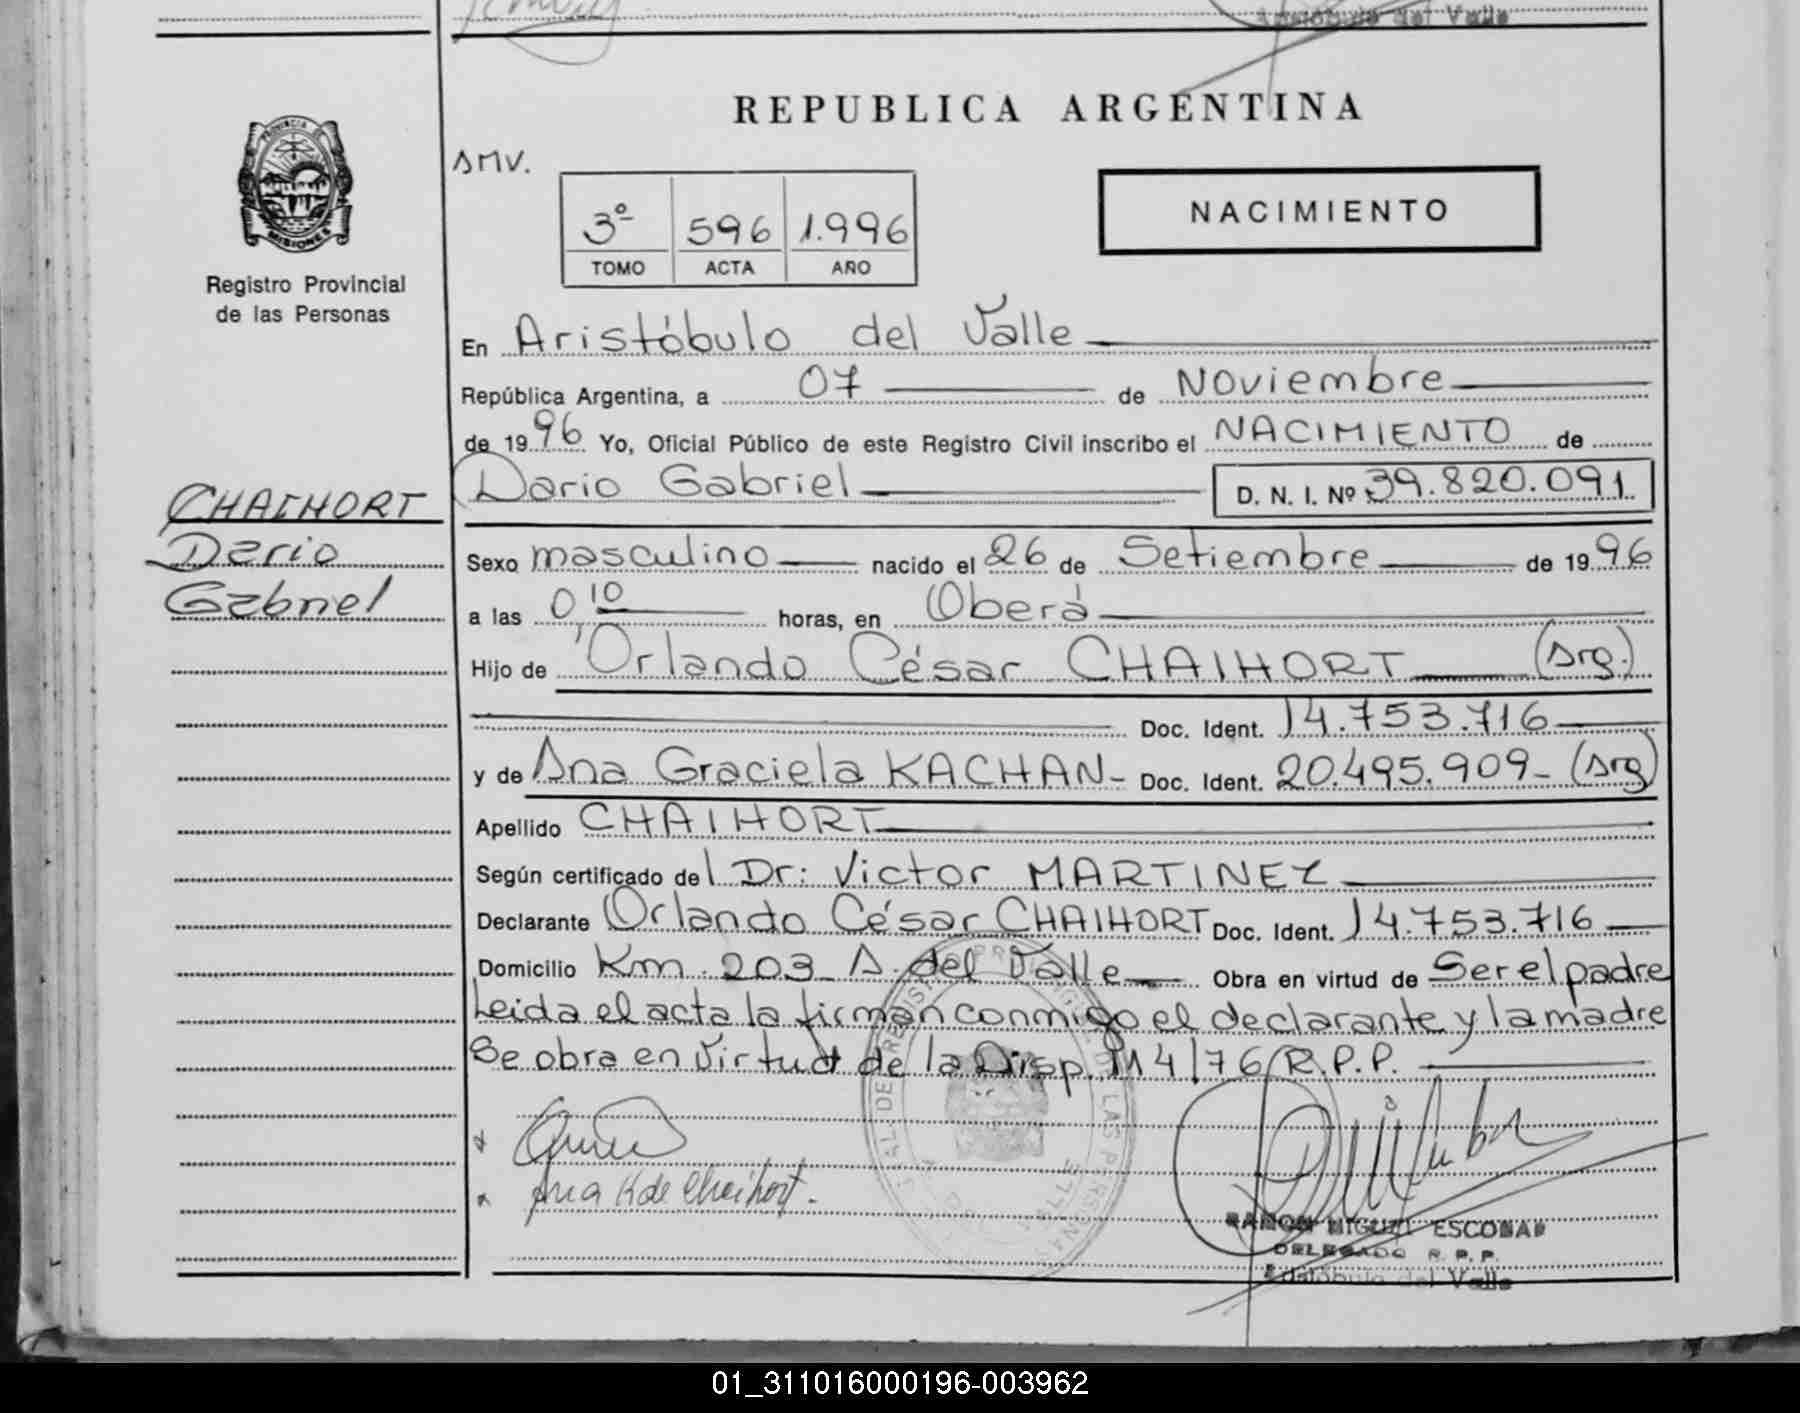 Aristóbulo del Valle
REPUBLICA ARGENTINA
PROVINCIA DE
MISIONES
Registro Provincial
de las Personas
AMV.
3º 596 1.996
TOMO ACTA AÑO
NACIMIENTO
En Aristóbulo del Valle
República Argentina, a 07 de Noviembre
de 1996 Yo, Oficial Público de este Registro Civil inscribo el NACIMIENTO de
Dario Gabriel D. N. I. Nº 39.820.091
CHAIHORT
Dario
Gabriel
Sexo masculino nacido el 26 de Setiembre de 1996
a las 0,10 horas, en Oberá
Hijo de Orlando César CHAIHORT (Arg.)
Doc. Ident. 14.753.716
y de Ana Graciela KACHAN- Doc. Ident. 20.495.909- (Arg)
Apellido CHAIHORT
Según certificado del Dr: Victor MARTINEZ
Declarante Orlando César CHAIHORT Doc. Ident. 14.753.716
Domicilio Km. 203 A. del Valle Obra en virtud de Ser el padre
Leida el acta la firman conmigo el declarante y la madre
Se obra en virtud de la Disp. 114/76 R.P.P.
Ana K de Chaihort.
RAMON MIGUEL ESCOBAR
DELEGADO R. P. P.
Aristóbulo del Valle
01_311016000196-003962